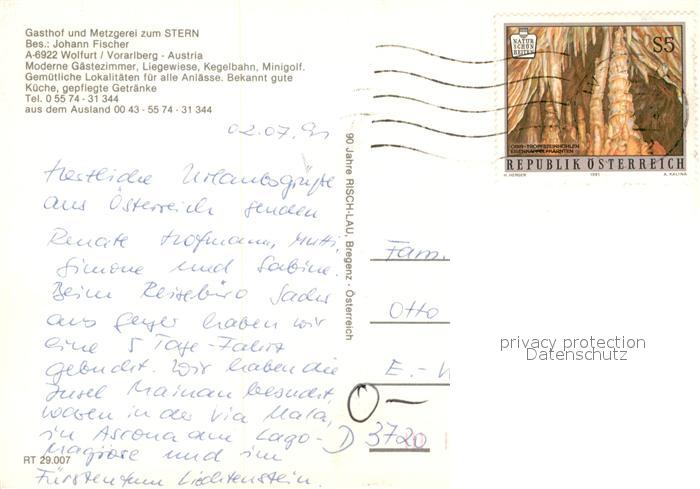 Gasthof und Metzgerei zum STERN
Bes.: Johann Fischer
A-6922 Wolfurt / Vorarlberg - Austria
Moderne Gästezimmer, Liegewiese, Kegelbahn, Minigolf.
Gemütliche Lokalitäten für alle Anlässe. Bekannt gute
Küche, gepflegte Getränke
Tel. 0 55 74 - 31 344
aus dem Ausland 00 43 - 55 74 - 31 344
NATUR
SCHÖN
HEITEN
S5
OBIR-TROPFSTEINHÖHLEN
EISENKAPPEL/KÄRNTEN
REPUBLIK ÖSTERREICH
H. HERGER 1991 A. KALINA
02.07.91
Herzliche Urlaubsgrüße
aus Österreich senden
Renate Hofmann, Mutti,
Simone und Sabine.
Beim Reisebüro
aus Geyer haben wir
eine 5 Tage-Fahrt
gebucht. Wir haben die
Insel Mainau besucht,
waren in der Via Mala,
in Ascona am Lago-
Magiore und im
Fürstentum Liechtenstein.
90 Jahre RISCH-LAU, Bregenz - Österreich
Fam.
Otto
E.-
D 3720
privacy protection
Datenschutz
RT 29.007